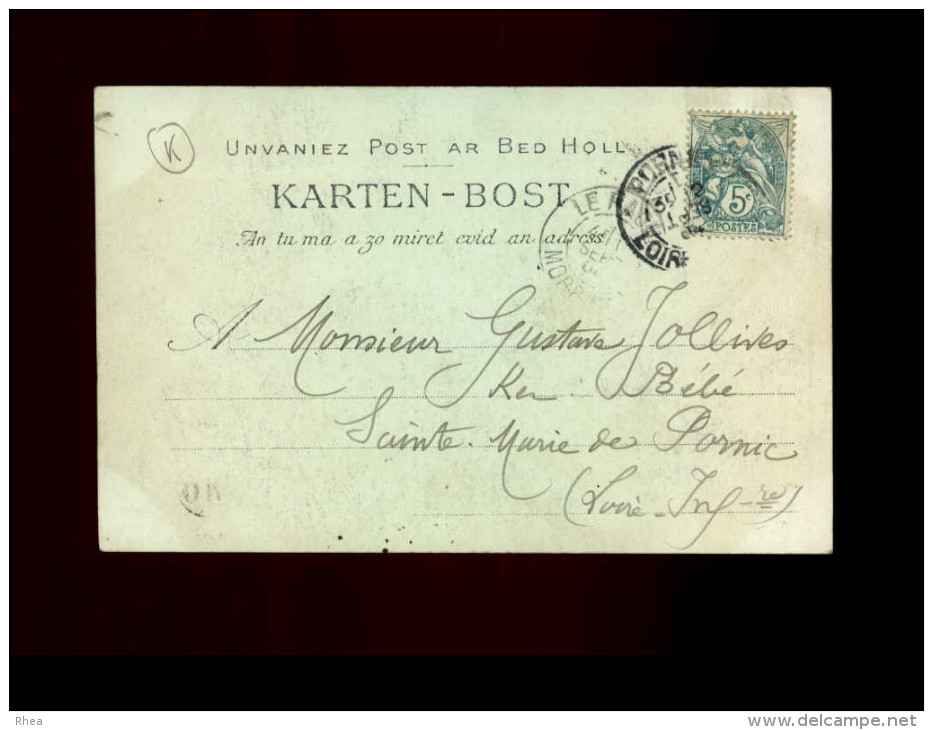 K
UNVANIEZ POST AR BED HOLL
KARTEN-BOST
An tu ma a zo miret evid an adress
5c
POSTES
LE
MOR
PORN
LOIR
A Monsieur Gustave Jollives
Ker Bébé
Sainte-Marie de Pornic
(Loire-Infre)
Rhea
http://www.delcampe.net